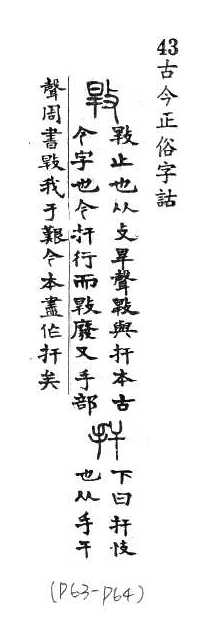 43古今正俗字詁
㪋
㪋止也从攴旱聲㪋與扞本古
今字也今扞行而㪋廢又手部
扞
下曰扞忮
也从手干
聲周書㪋我于艱今本盡作扞矣
(P63-P64)